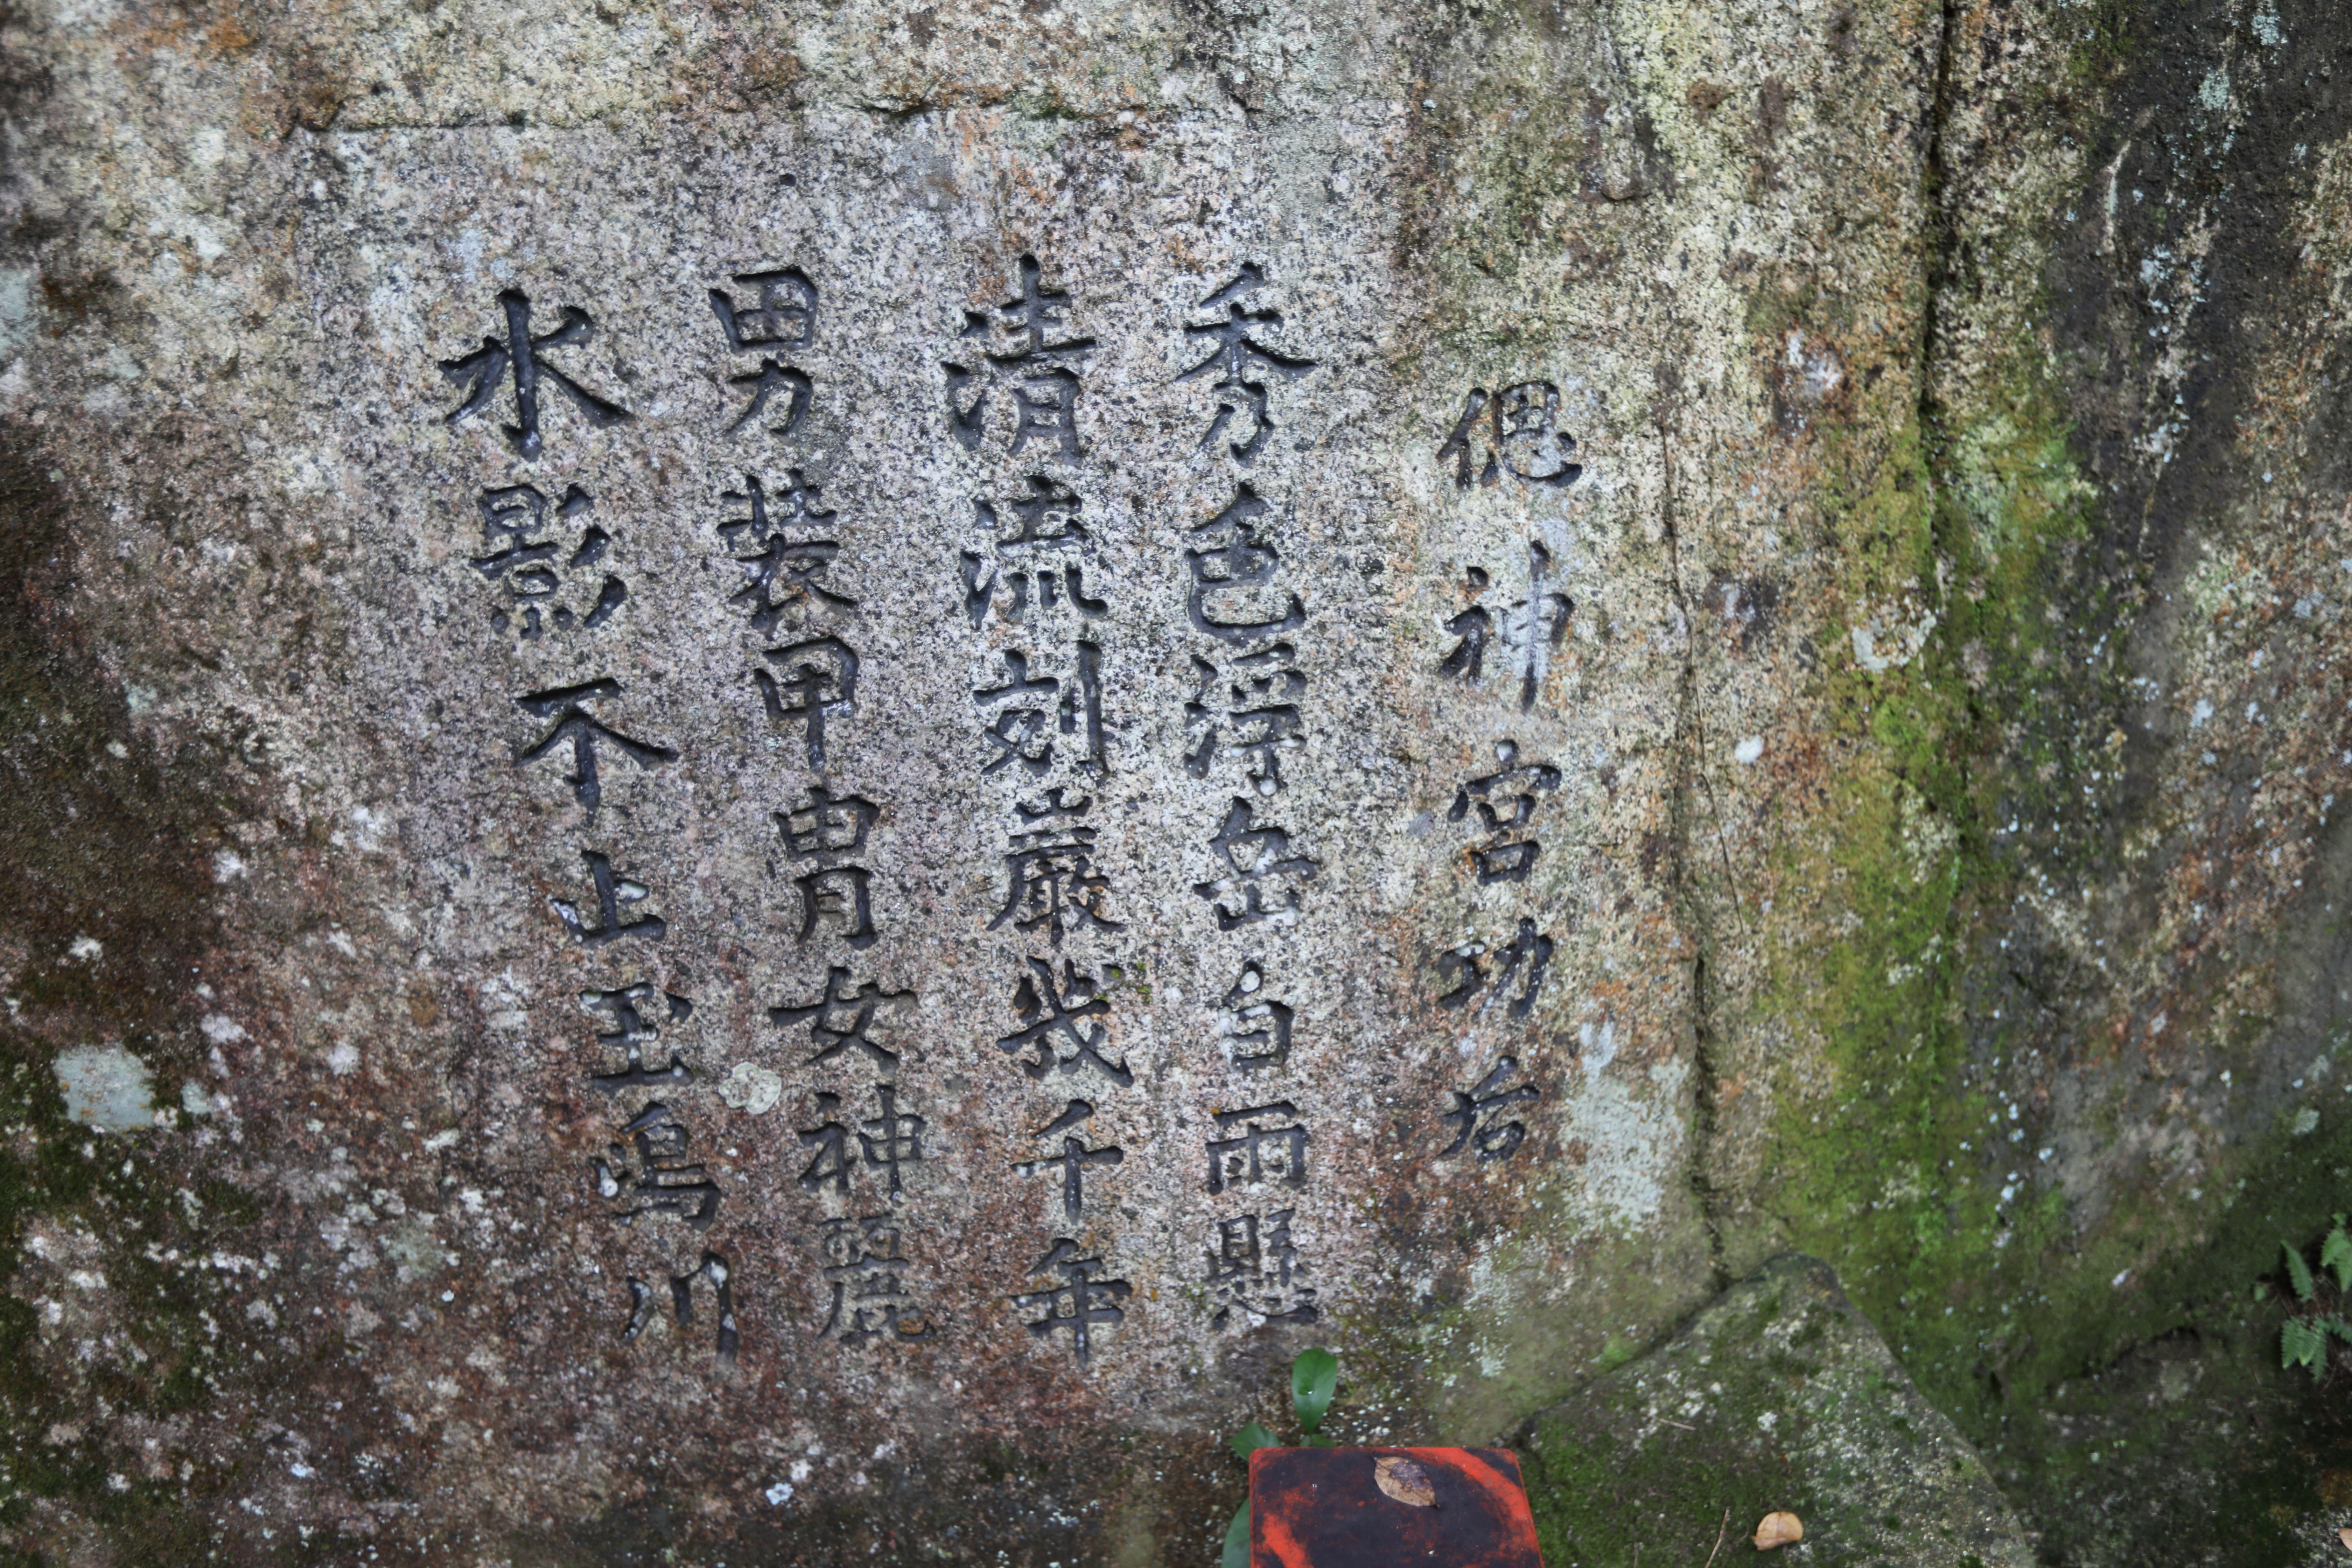 偲神宮功后
秀色浮岳白雨懸
清流刻巌幾千年
男装甲冑女神麗
水影不止玉嶋川